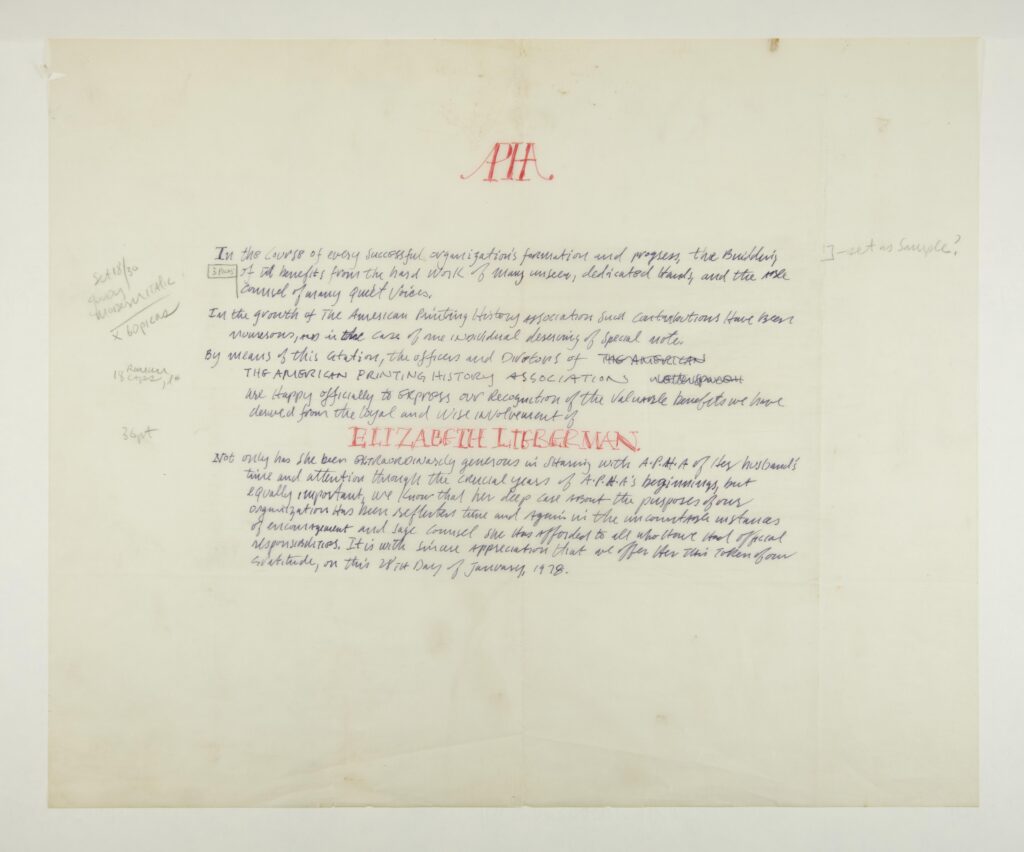 APHA
In the Course of every Successful organization's formation and progress, the Building
of it benefits from the hard work of many unseen, dedicated Hands, and the able
Counsel of many Quiet Voices.
In the growth of The American Printing History Association Such Contributions Have been
numerous, as in the case of one individual deserving of Special note.
By means of this Citation, the officers and Directors of THE AMERICAN
THE AMERICAN PRINTING HISTORY ASSOCIATION
are Happy officially to Express our Recognition of the Valuable Benefits we have
derived from the Loyal and Wise involvement of
ELIZABETH LIEBERMAN.
Not only has she been Extraordinarily generous in Sharing with A.P.H.A of Her husband's
time and attention through the Crucial years of A.P.H.A's beginnings, but
equally important, we know that her deep care About the purposes of our
organization Has been reflected time and Again in the uncountable instances
of encouragement and Sage Counsel she Has afforded to all who Have Had official
responsibilities. It is with Sincere Appreciation that we offer Her this Token of our
Gratitude, on this 28TH Day of January, 1978.
Set 18/30
italic
X 60 picas
18 Roman
36 pt
]-set as Sample?